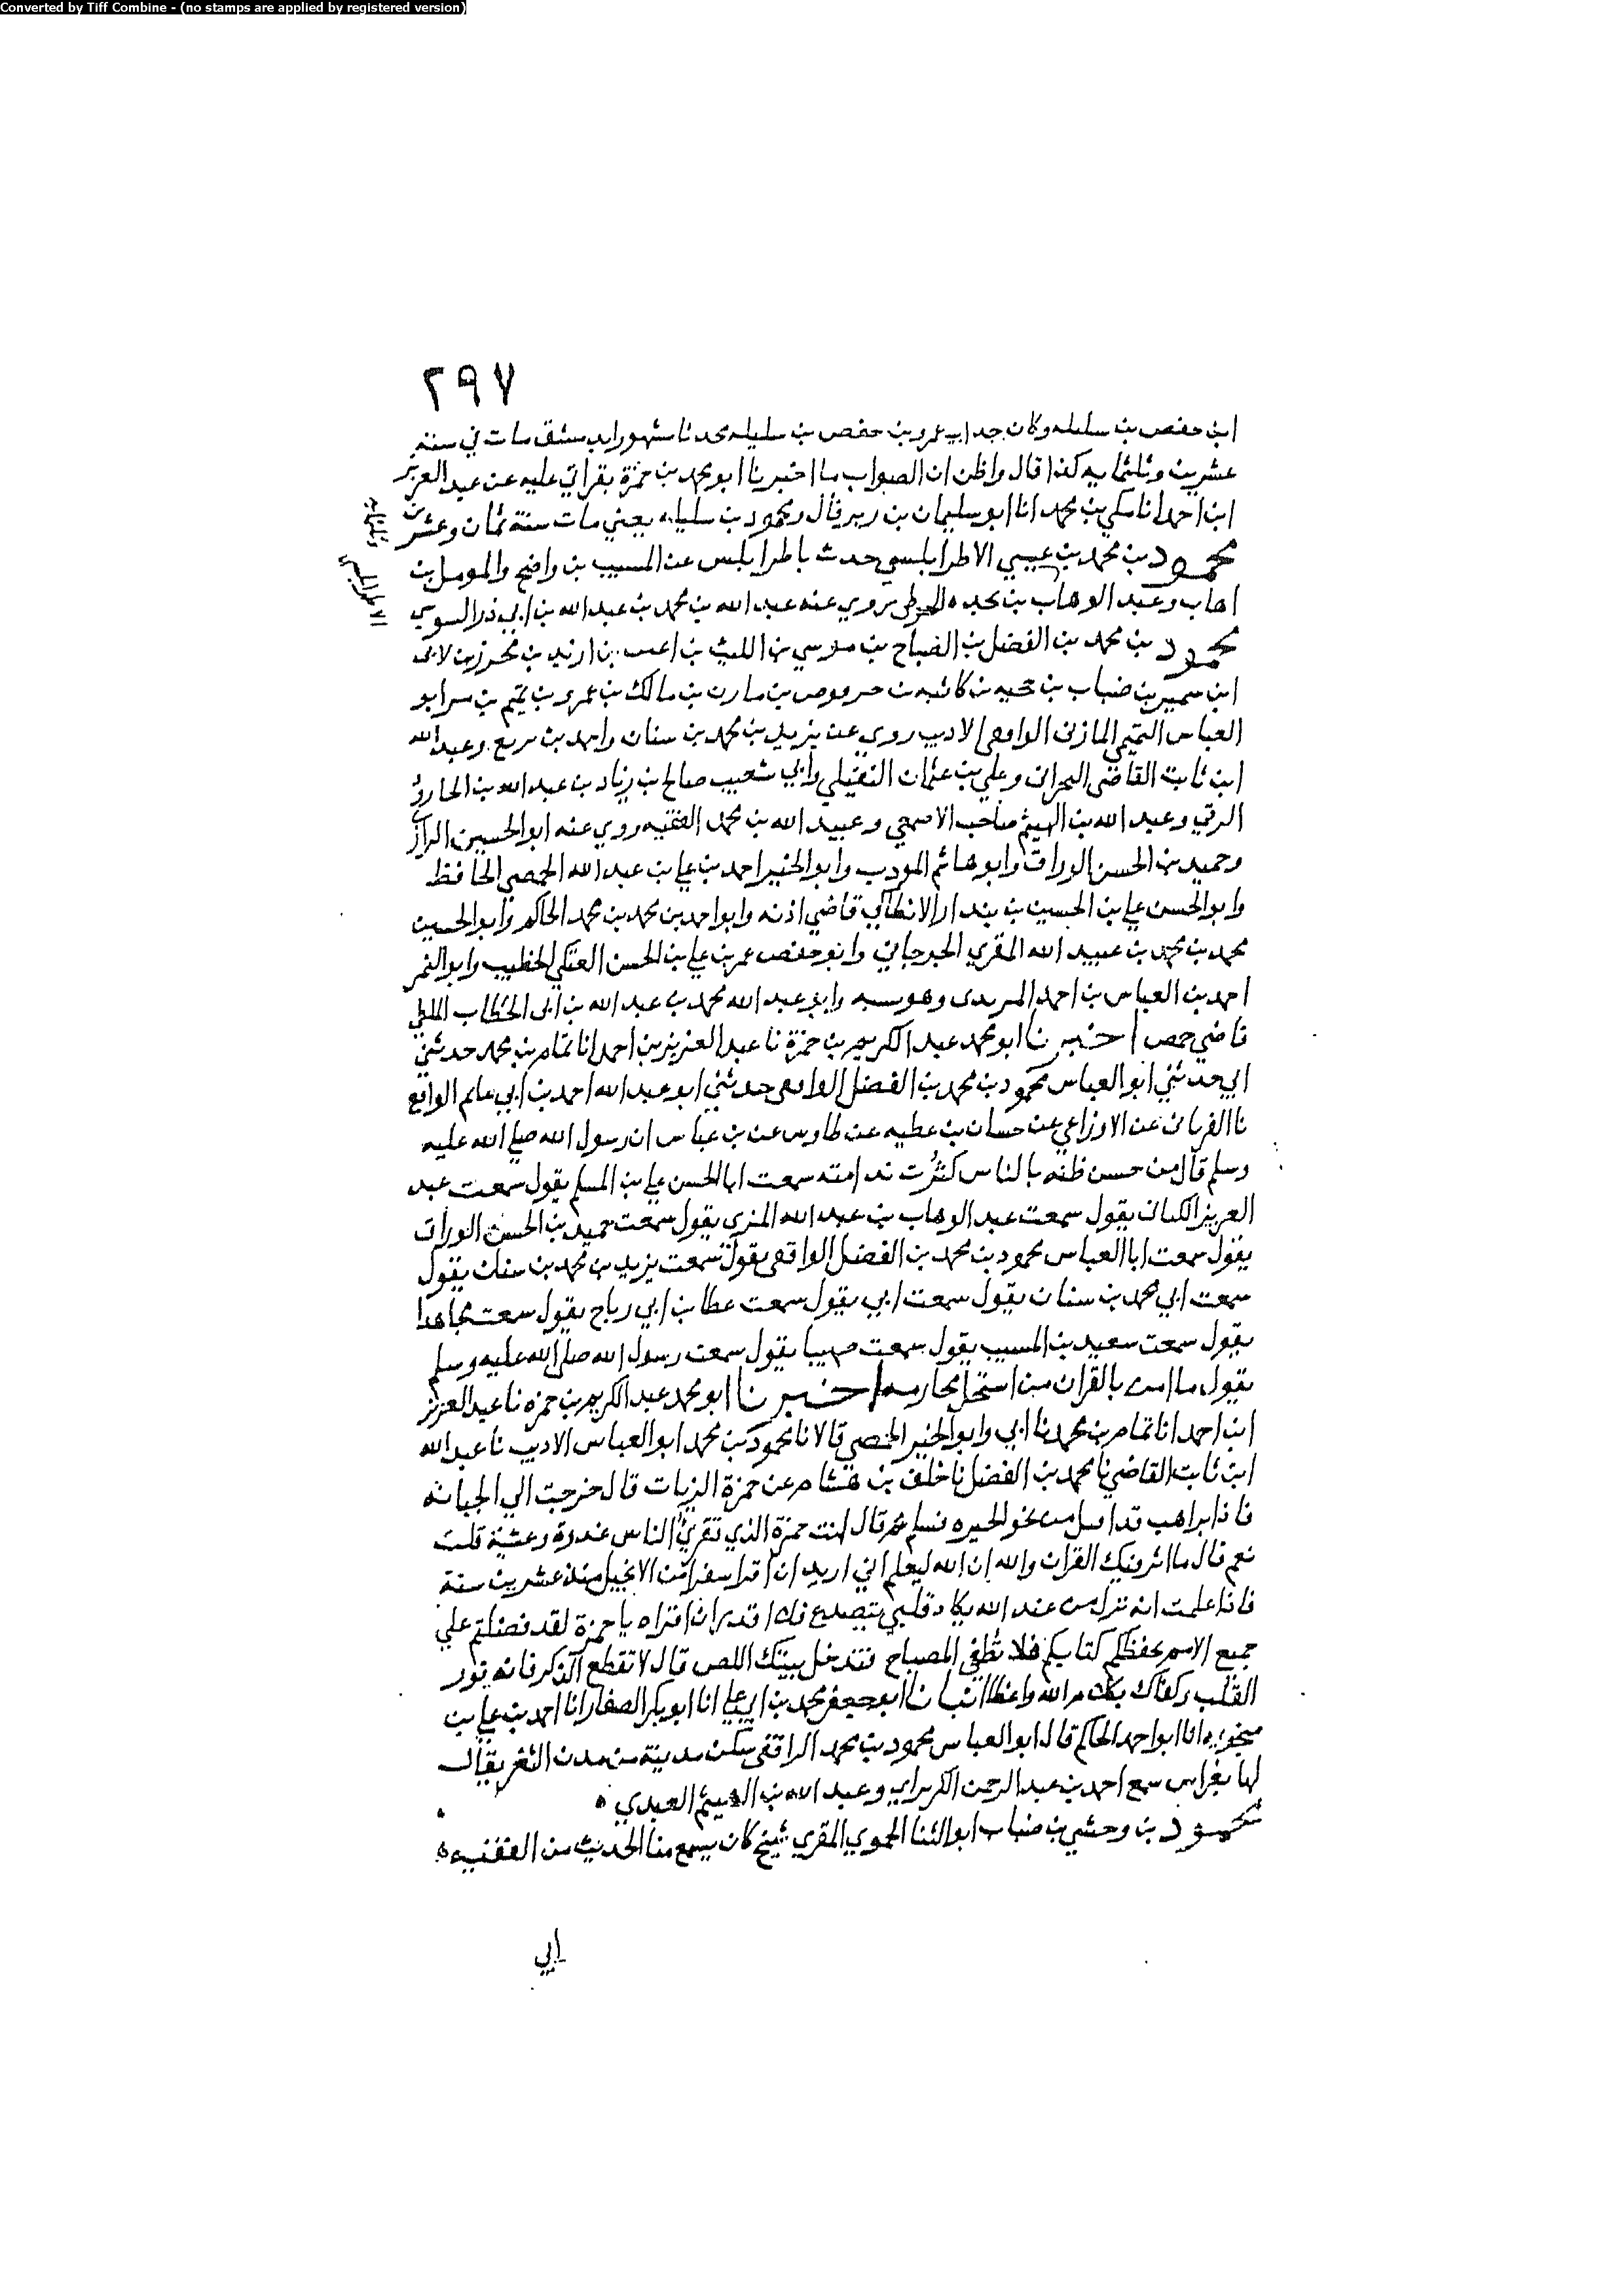 Converted by Tiff Combine - (no stamps are applied by registered version)
٢٩٧
ابن حفص بن سليله وكان جد ابيه عمرو بن حفص بن سليله محدثا مشهورا بدمشق مات في سنة
عشرين وثلثمايه كذا قال واظن ان الصواب ما اخبرنا ابو محمد بن حمزة بقراتي عليه عن عبد العزيز
ابن احمد انا مكي بن محمد انا ابو سليمان بن زبر قال ومحمود بن سليله يعني مات سنة ثمان وعشرين
وثلثمايه
محمود بن محمد بن عيسي الاطرابلسي حدث باطرابلس عن المسيب بن واضح والمومل بن
اهاب وعبد الوهاب بن نجده الحوطي روي عنه عبد الله بن محمد بن عبد الله بن ابي ذر السوسي
الاطرابلسي
محمود بن محمد بن الفضل بن الصباح بن موسي بن الليث بن بن محرز بن لاى
ابن سمير بن ضباب بن كابيه بن حرقوص بن مازن بن مالك بن عمرو بن تميم بن مر ابو
العباس التميمي المازنى الرافعى الاديب روي عن يزيد بن محمد بن سنان واحمد بن وعبد الله
ابن ثابت القاضى البحرانى وعلي بن عثمان النفيلي وابي شعيب صالح بن زياد بن عبد الله بن الجارود
الرقي وعبد الله بن الهيثم صاحب الاصمعي وعبيد الله بن محمد الفقيه روي عنه ابو الحسين الرازي
وحميد بن الحسن الوراق وابو هاشم المودب وابو الخير احمد بن علي بن عبد الله الحمصي الحافظ
وابو الحسن علي بن الحسين بن بندار الانطاكي قاضي اذنه وابو احمد بن محمد بن محمد الحاكم وابو الحسين
محمد بن محمد بن عبيد الله المقري الجرجاني وابو حفص عمر بن علي بن الحسن العتكي الخطيب وابو النمر
احمد بن العباس بن احمد وهو وابو عبد الله محمد بن عبد الله بن ابى الخطاب الملطي
قاضي حمص اخبرنا ابو محمد عبد الكريم بن حمزة نا عبد العزيز بن احمد انا تمام بن محمد حدثني
ابي حدثني ابو العباس محمود بن محمد بن الفضل الرافعى حدثني ابو عبد الله احمد بن ابي غانم الرافقي
نا الفريابى عن الاوزاعي عن حسان بن عطيه عن طاوس عن بن عباس ان رسول الله صلي الله عليه
وسلم قال من حسن ظنه بالناس كثرت ندامته سمعت ابا الحسن علي بن المسلم يقول سمعت عبد
العزيز الكتانى يقول سمعت عبد الوهاب بن عبد الله المزي يقول سمعت حميد بن الحسن الوراق
يقول سمعت ابا العباس محمود بن محمد بن الفضل الرافقي يقول سمعت يزيد بن محمد بن سنان يقول
سمعت ابي محمد بن سنان يقول سمعت ابي يقول سمعت عطا بن ابي رباح يقول سمعت مجاهدا
يقول سمعت سعيد بن المسيب يقول سمعت صهيبا يقول سمعت رسول الله صلي الله عليه وسلم
يقول ما امن بالقران من استحل محارمه اخبرنا ابو محمد عبد الكريم بن حمزه نا عبد العزيز
ابن احمد انا تمام بن محمد نا ابي وابو الخير الحمصي قالا نا محمود بن محمد ابو العباس الاديب نا عبد الله
ابن ثابت القاضي نا محمد بن الفضل نا خلف بن هشام عن حمزة الزيات قال خرجت الي الجبانه
فاذا براهب قد اقبل من نحو الحيره فسلم ثم قال انت حمزة الذي تقرئ الناس غدوة وعشية قلت
نعم قال ما اثر فيك القران والله ان الله ليعلم اني اريد ان اقرا سفرا من الانجيل منذ عشرين سنة
فاذا علمت انه نزل من عند الله يكاد قلبي يتصدع فلا اقدر ان اقراه يا حمزة لقد فضلتم علي
جميع الامم بحفظكم كتابكم فلا تطفي المصباح فتدخل بيتك اللص قال لا تقطع الذكر فانه نور
القلب وكفاك بكلام الله واعظا انبانا ابو جعفر محمد بن ابي علي انا ابو بكر الصفار انا احمد بن علي بن
منجويه انا ابو احمد الحاكم قال ابو العباس محمود بن محمد الرافقى سكن مدينة من مدن الثغر يقال
لها بغراس سمع احمد بن عبد الرحمن الكزبراني وعبد الله بن الهيثم العبدي ه
محمود بن وحشي بن ضباب ابو الثنا الحموي المقري شيخ كان يسمع منا الحديث من الفقيه ه
ابي